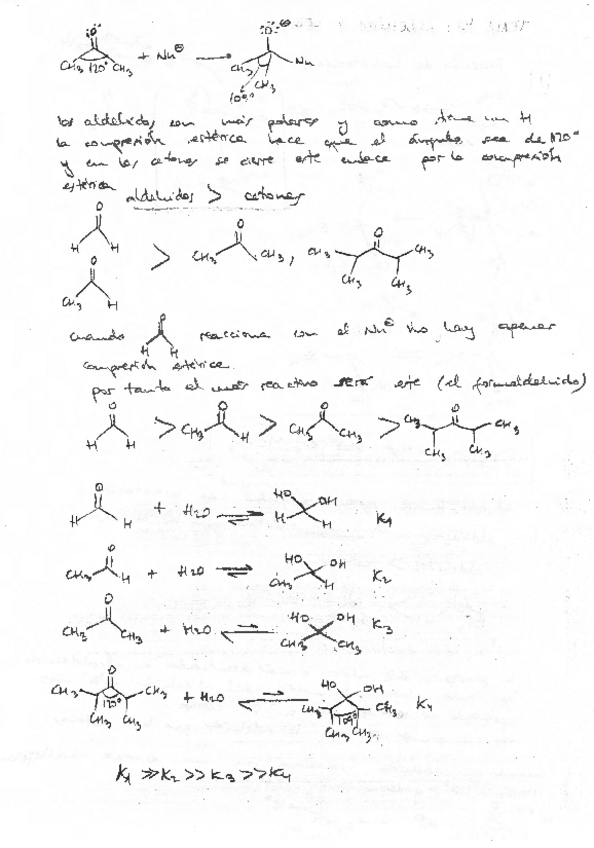 :O: :O:⊖
CH3 120° CH3 + Nu⊖ → CH3 Nu
CH3
109°
los aldehidos son más polares y como tiene un H
la compresión estérica hace que el ángulo sea de 120°
y en las cetonas se cierre este enlace por la compresión
estérica
aldehidos > cetonas
O O O
H H > CH3 CH3, CH3 CH3
O CH3 CH3
CH3 H
cuando O reacciona con el Nu⊖ no hay apenas
H H
compresión estérica.
por tanto el más reactivo será este (el formaldehido)
O O O O
H H > CH3 H > CH3 CH3 > CH3 CH3
CH3 CH3
O HO OH
H H + H2O ⇌ H H K1
O HO OH
CH3 H + H2O ⇌ CH3 H K2
O HO OH
CH3 CH3 + H2O ⇌ CH3 CH3 K3
O HO OH
CH3 120° CH3 + H2O ⇌ CH3 109° CH3 K4
CH3 CH3 CH3 CH3
K1 >> K2 >> K3 >> K4